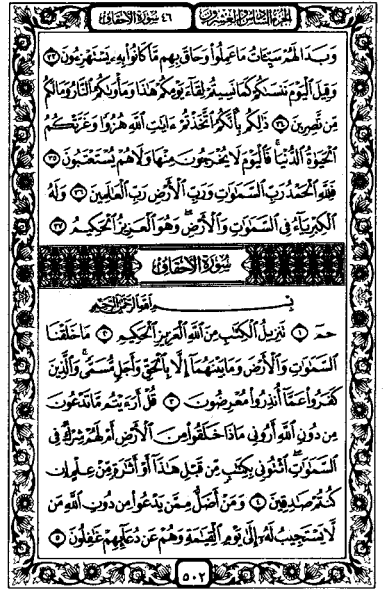 الجزء السادس والعشرون ٤٦ سورة الأحقاف
وَبَدَا لَهُمْ سَيِّئَاتُ مَا عَمِلُوا وَحَاقَ بِهِم مَّا كَانُوا بِهِ يَسْتَهْزِءُونَ ٣٣
وَقِيلَ الْيَوْمَ نَنسَىٰكُمْ كَمَا نَسِيتُمْ لِقَاءَ يَوْمِكُمْ هَٰذَا وَمَأْوَىٰكُمُ النَّارُ وَمَا لَكُم
مِّن نَّٰصِرِينَ ٣٤ ذَٰلِكُم بِأَنَّكُمُ اتَّخَذْتُمْ ءَايَٰتِ اللَّهِ هُزُوًا وَغَرَّتْكُمُ
الْحَيَوٰةُ الدُّنْيَا فَالْيَوْمَ لَا يُخْرَجُونَ مِنْهَا وَلَا هُمْ يُسْتَعْتَبُونَ ٣٥
فَلِلَّهِ الْحَمْدُ رَبِّ السَّمَٰوَٰتِ وَرَبِّ الْأَرْضِ رَبِّ الْعَٰلَمِينَ ٣٦ وَلَهُ
الْكِبْرِيَاءُ فِي السَّمَٰوَٰتِ وَالْأَرْضِ وَهُوَ الْعَزِيزُ الْحَكِيمُ ٣٧
سورة الأحقاف
بِسْمِ اللَّهِ الرَّحْمَٰنِ الرَّحِيمِ
حمٓ ١ تَنزِيلُ الْكِتَٰبِ مِنَ اللَّهِ الْعَزِيزِ الْحَكِيمِ ٢ مَا خَلَقْنَا
السَّمَٰوَٰتِ وَالْأَرْضَ وَمَا بَيْنَهُمَا إِلَّا بِالْحَقِّ وَأَجَلٍ مُّسَمًّى وَالَّذِينَ
كَفَرُوا عَمَّا أُنذِرُوا مُعْرِضُونَ ٣ قُلْ أَرَءَيْتُم مَّا تَدْعُونَ
مِن دُونِ اللَّهِ أَرُونِي مَاذَا خَلَقُوا مِنَ الْأَرْضِ أَمْ لَهُمْ شِرْكٌ فِي
السَّمَٰوَٰتِ ائْتُونِي بِكِتَٰبٍ مِّن قَبْلِ هَٰذَا أَوْ أَثَٰرَةٍ مِّنْ عِلْمٍ إِن
كُنتُمْ صَٰدِقِينَ ٤ وَمَنْ أَضَلُّ مِمَّن يَدْعُوا مِن دُونِ اللَّهِ مَن
لَّا يَسْتَجِيبُ لَهُ إِلَىٰ يَوْمِ الْقِيَٰمَةِ وَهُمْ عَن دُعَائِهِمْ غَٰفِلُونَ ٥
٥٠٢